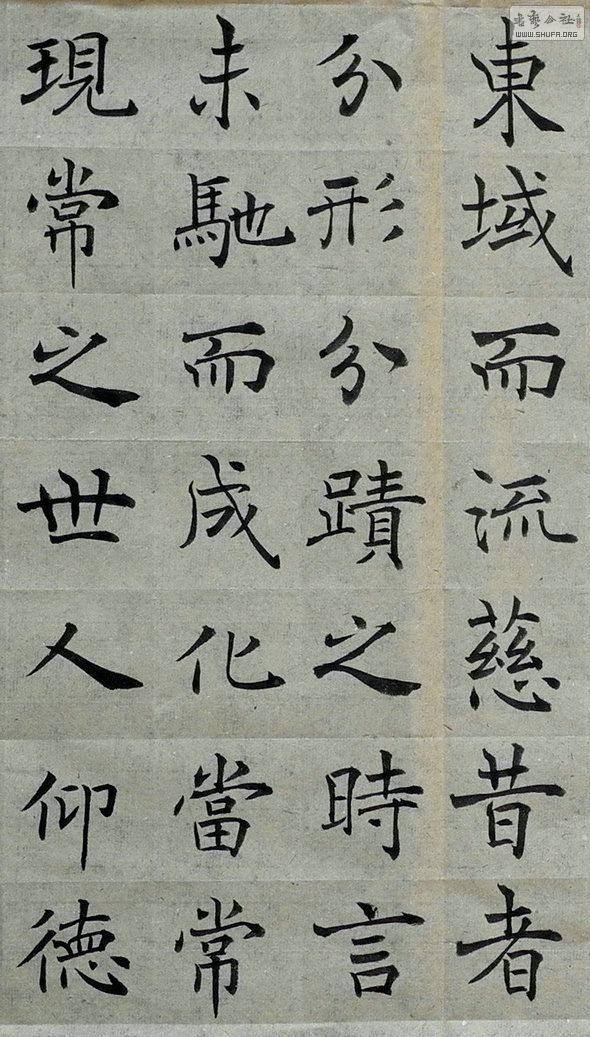 東域而流慈昔者
分形分蹟之時言
未馳而成化當常
現常之世人仰德
書藝公社
WWW.SHUFA.ORG